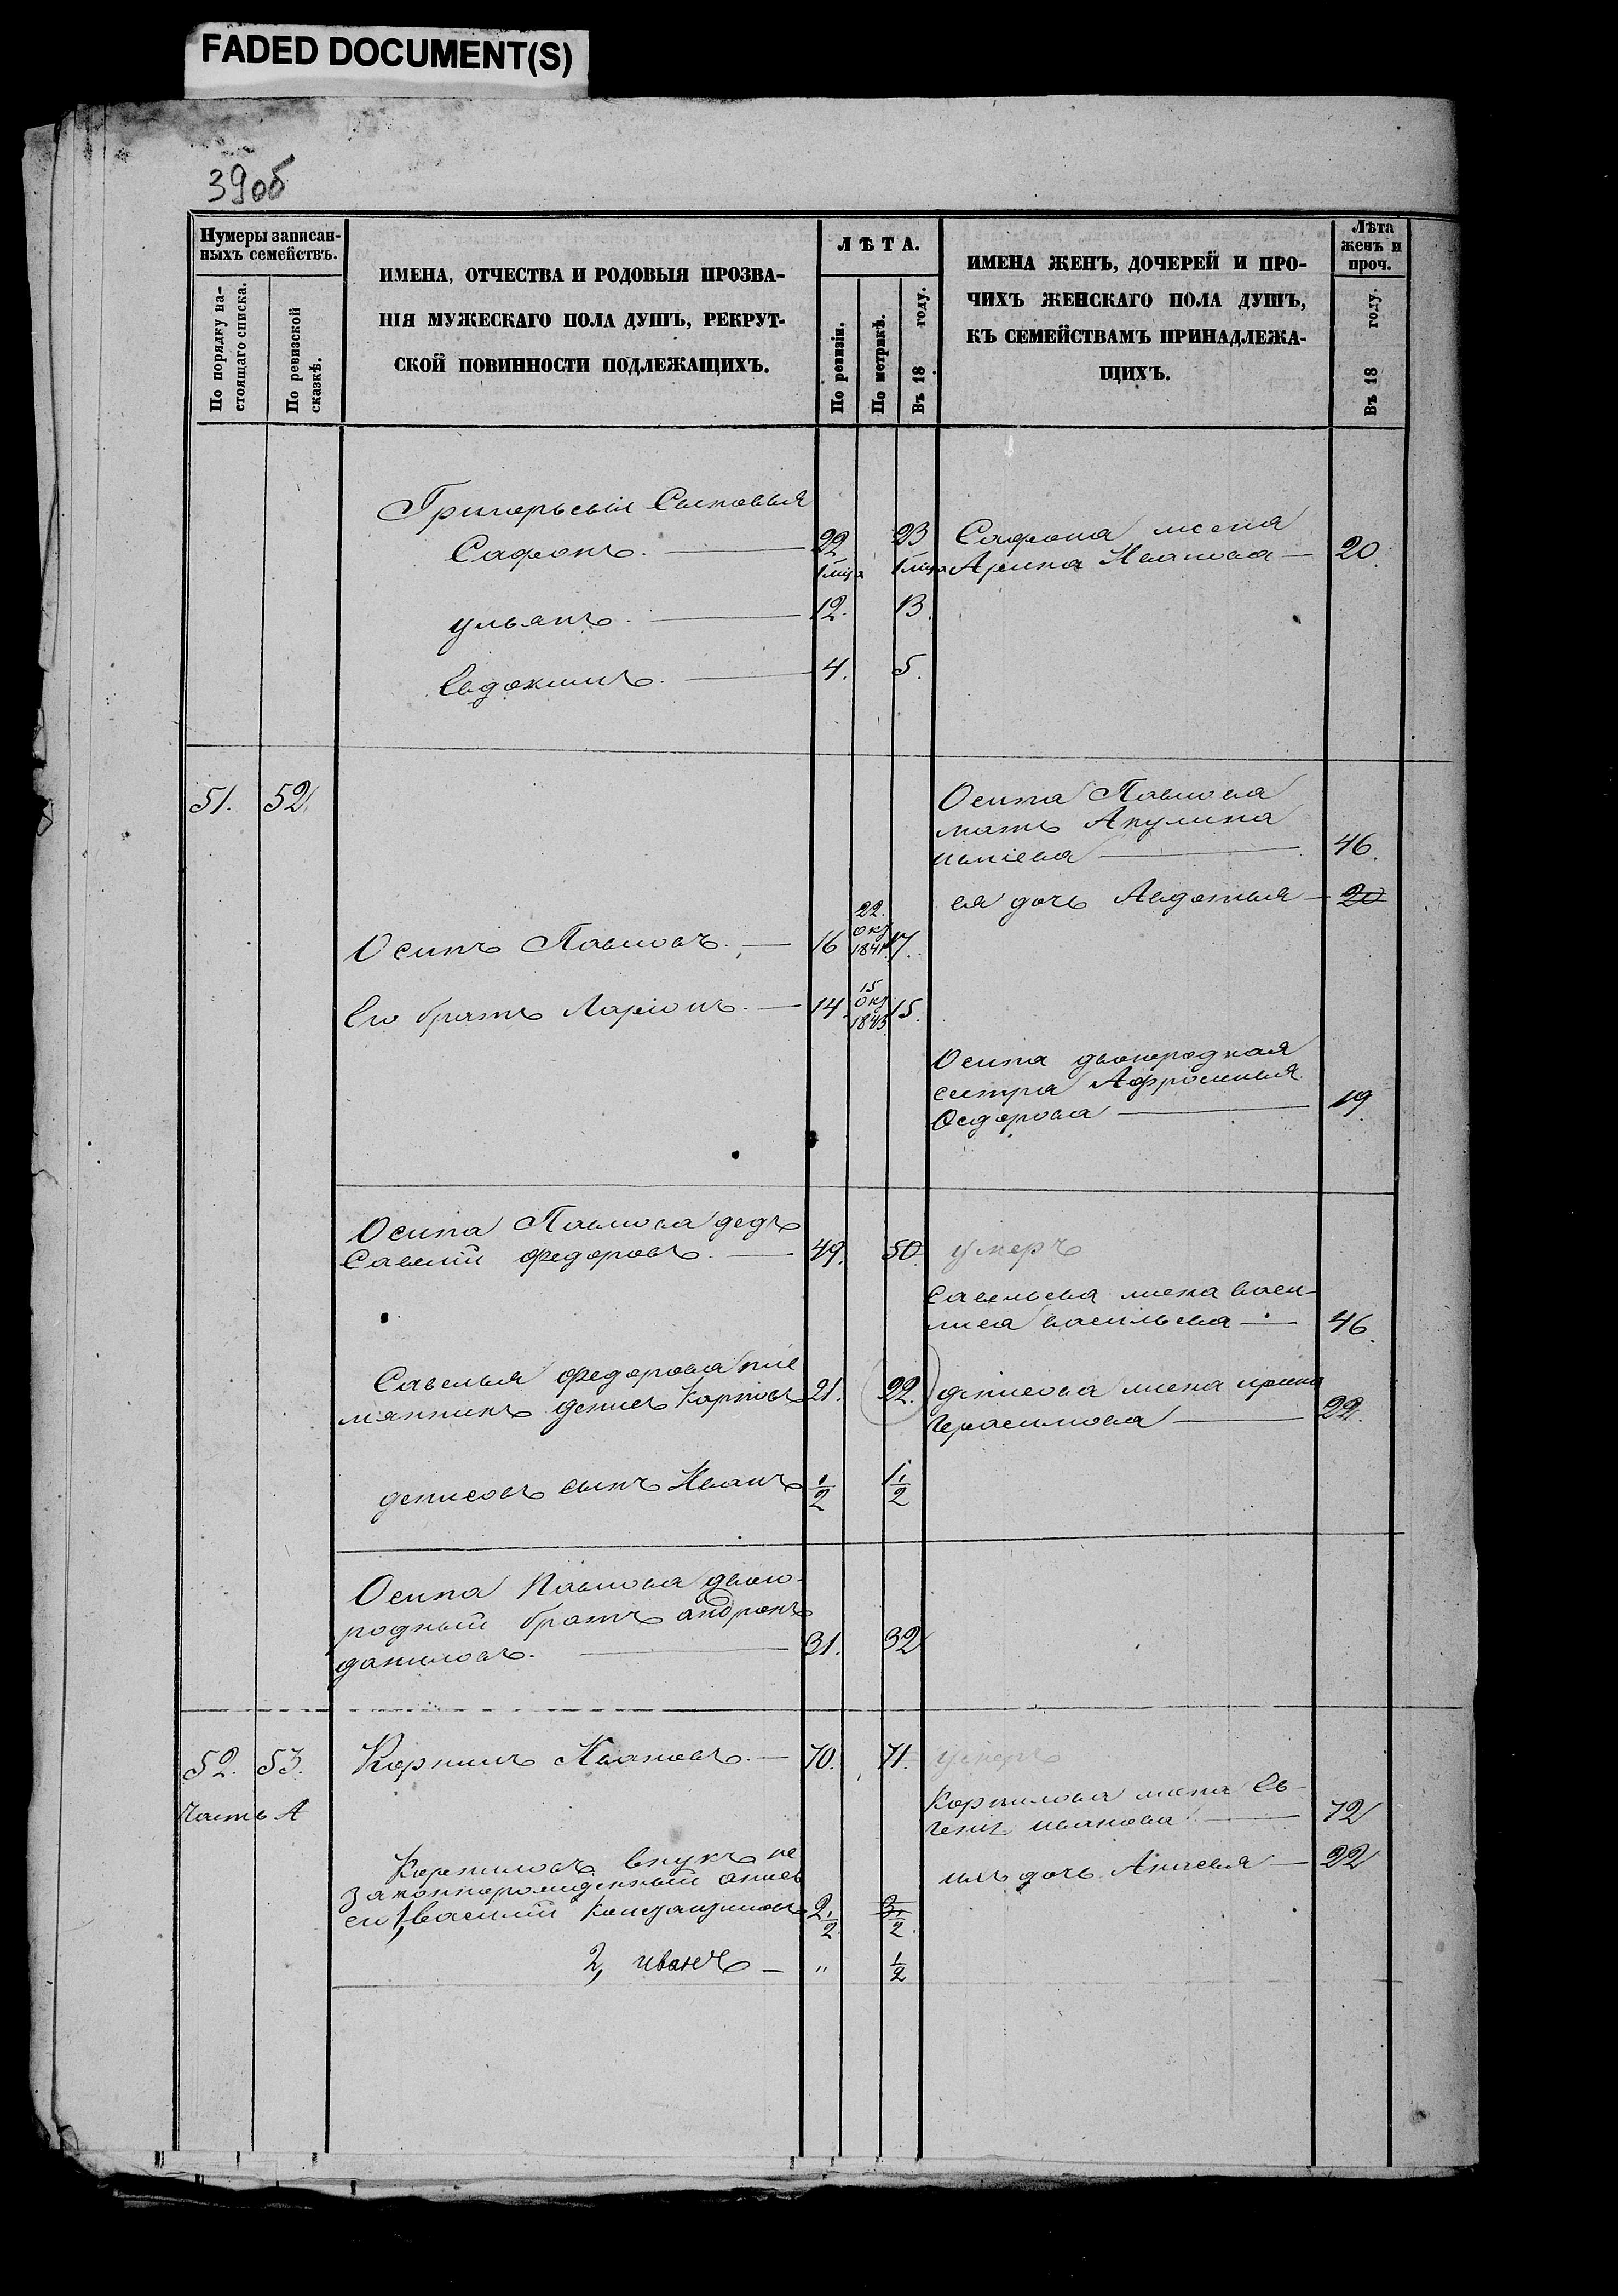 FADED DOCUMENT(S)
39об
Нумеры записан-
ныхъ семействъ.
По порядку на-
стоящаго списка.
По ревизской
сказкѣ.
ИМЕНА, ОТЧЕСТВА И РОДОВЫЯ ПРОЗВА-
НІЯ МУЖЕСКАГО ПОЛА ДУШЪ, РЕКРУТ-
СКОЙ ПОВИННОСТИ ПОДЛЕЖАЩИХЪ.
ЛѢТА.
По ревизіи.
По метрикѣ.
Въ 18 году.
ИМЕНА ЖЕНЪ, ДОЧЕРЕЙ И ПРО-
ЧИХЪ ЖЕНСКАГО ПОЛА ДУШЪ,
КЪ СЕМЕЙСТВАМЪ ПРИНАДЛЕЖА-
ЩИХЪ.
Лѣта
женъ и
проч.
Въ 18 году.
Григорьевы Сыновья
Сафонъ. 22 23 Сафона жена
Арина Иванова 20.
ульянъ. 12. 13.
Евдокимъ. 4. 5.
51. 52. Осипа Павлова
мать Акулина
46.
ея дочь Авдотья 20
Осипъ Павловъ. 16 22. окт 1841 17.
Его братъ Ларіонъ. 14. 15 окт 1843 15.
Осипа двоюродная
сестра Афросинья
19.
Осипа Павлова дедъ
Савелий федоровъ. 49. 50. умеръ
Савельева жена васи-
лиса васильева 46.
Савелья федорова пле
мянникъ денис Карповъ 21. 22. денисова жена ирина
Герасимова 22.
денисовъ сынъ Иванъ 1/2 1 1/2
Осипа Павлова двою-
родный братъ андронъ
даниловъ. 31. 32
52. 53. Корнилъ Ивановъ. 70. 71. умеръ
Часть А Корнилова жена Ев-
гения иванова 72
Корниловъ внукъ не
законнорожденный
их дочь Анисья 22
1, василий Констянтиновъ 2 1/2 3 1/2
2, иванъ " 1/2